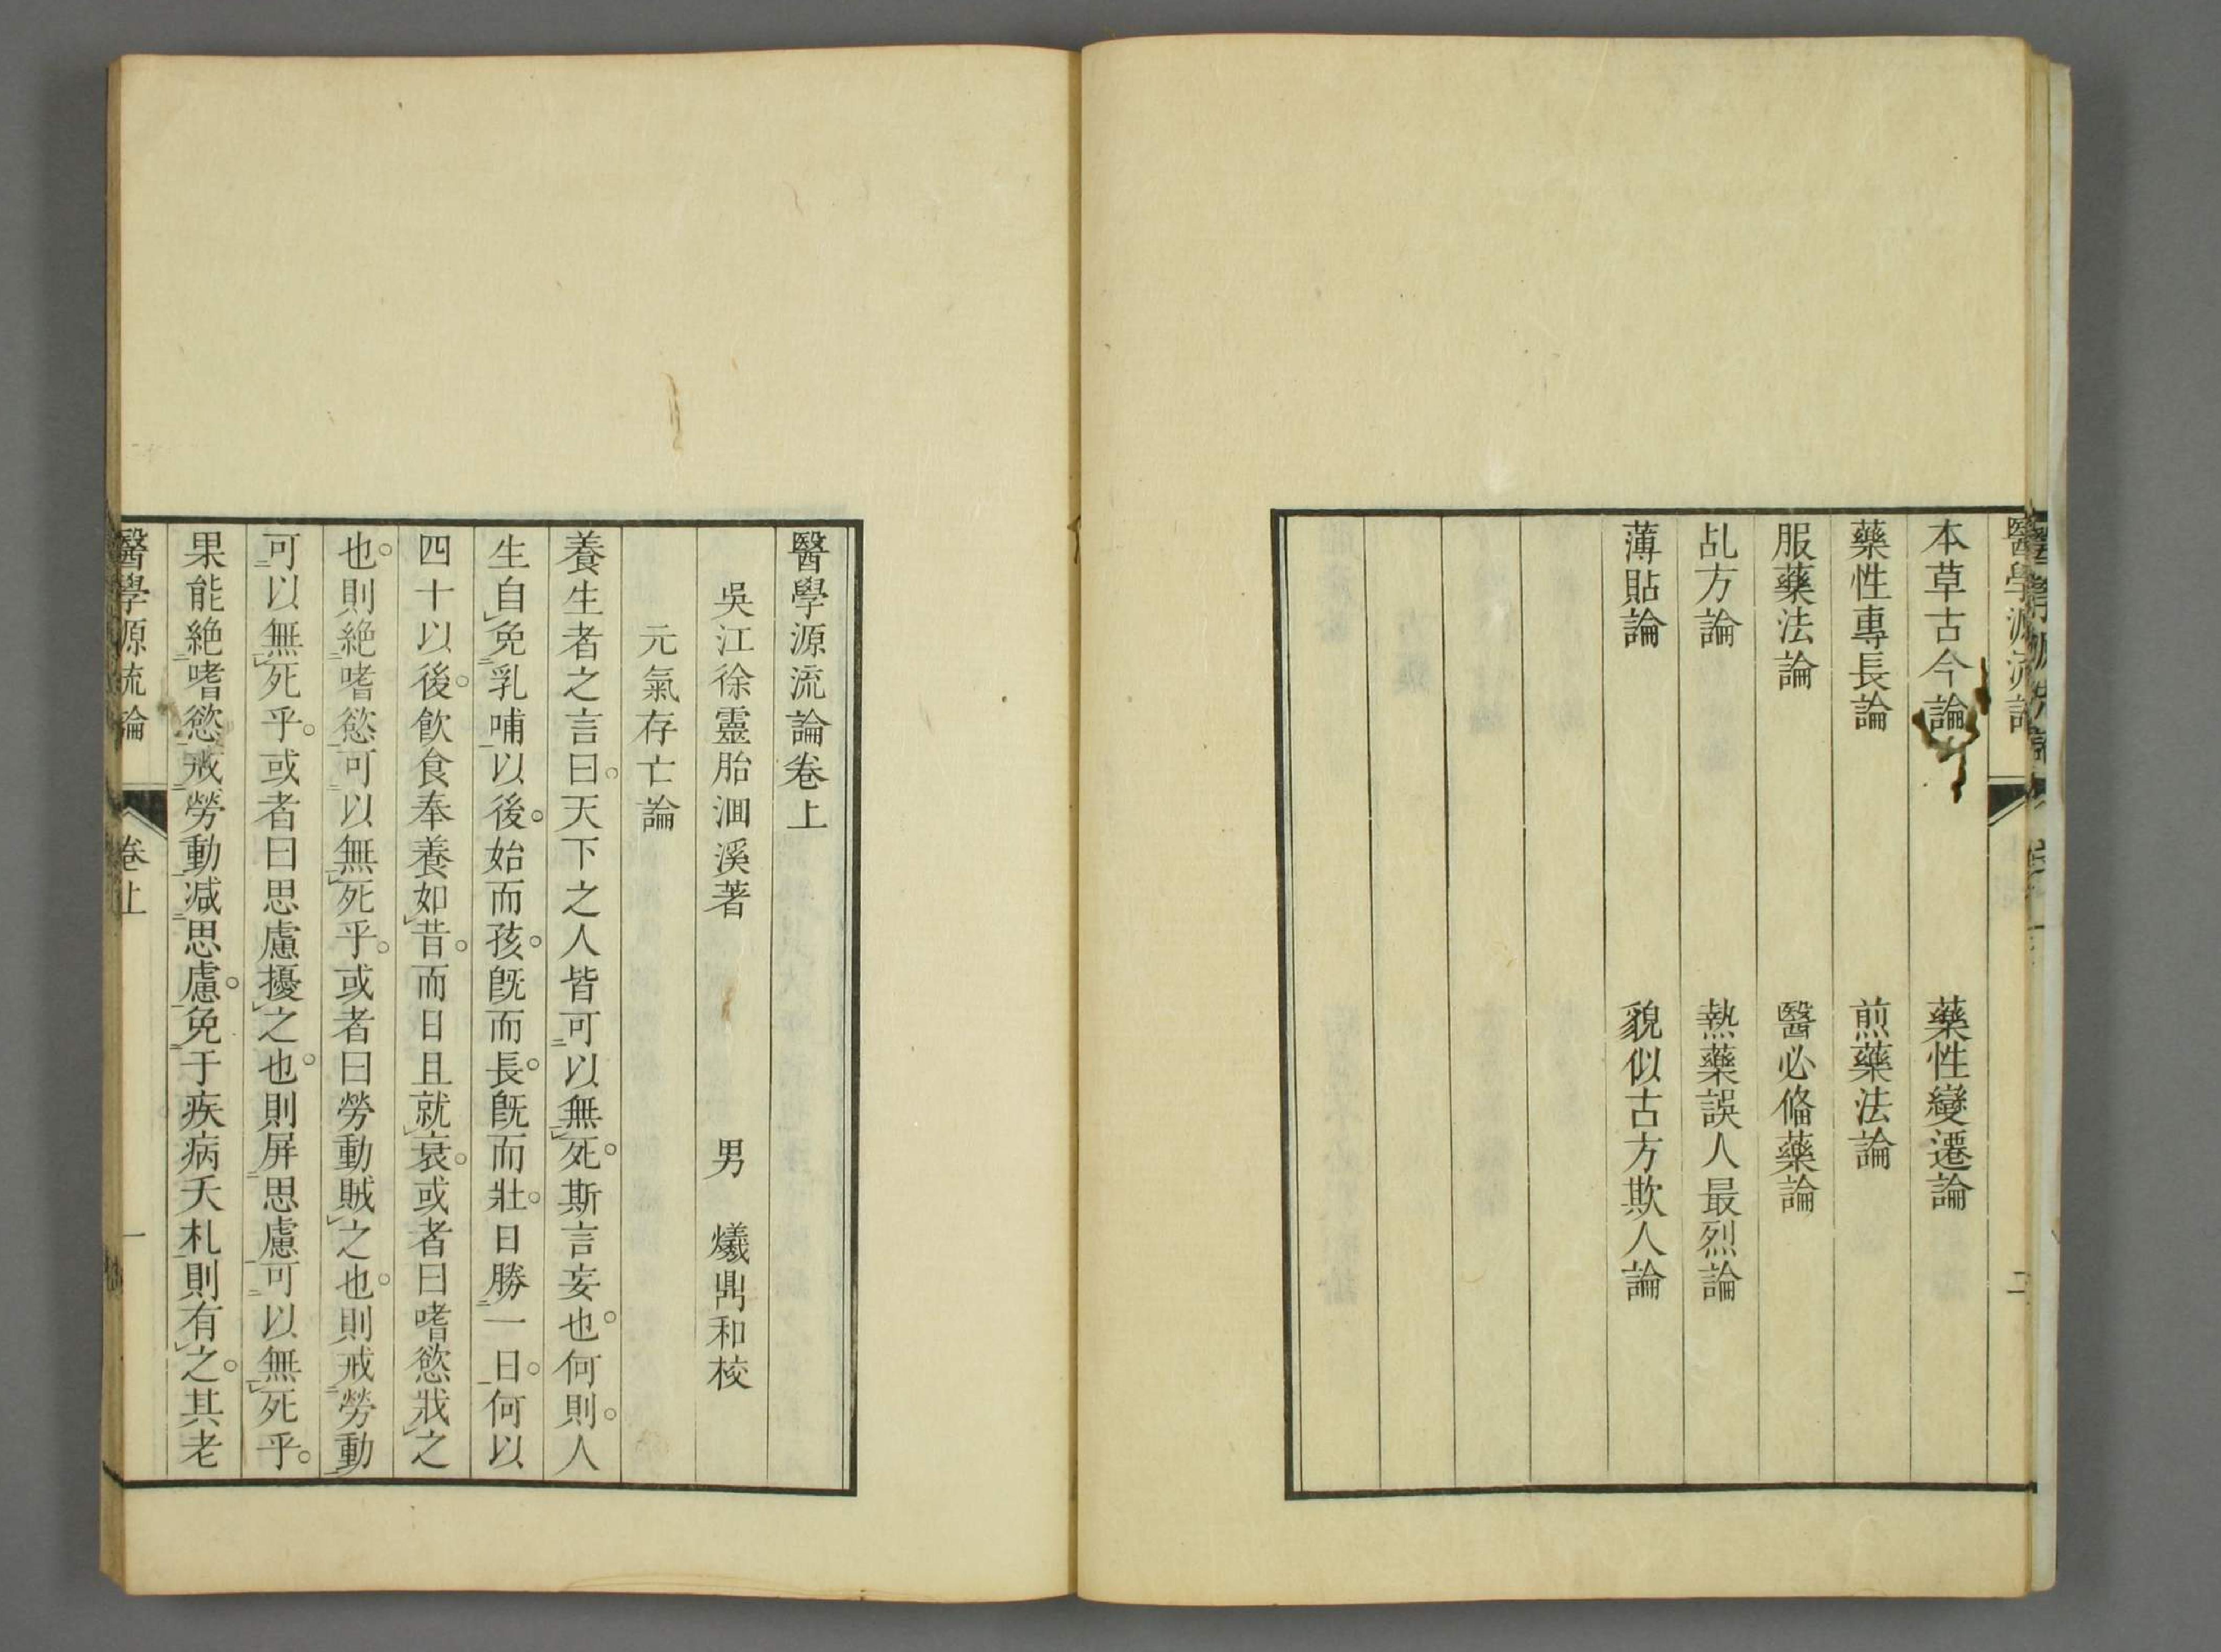 醫學源流論
二
本草古今論　藥性變遷論
藥性專長論　煎藥法論
服藥法論　醫必俻藥論
乩方論　熱藥誤人最烈論
薄貼論　貌似古方欺人論
醫學源流論卷上
吳江徐靈胎洄溪著　男　爔鼎和校
元氣存亡論
養生者之言曰。天下之人皆可二以無一レ死。斯言妄也。何則。人
生自レ免二乳哺一以後。始而孩。旣而長。旣而壯。日勝二一日一。何以
四十以後。飲食奉養如レ昔。而日且就レ衰。或者曰嗜慾戕レ之
也。則絶二嗜慾一可二以無一レ死乎。或者曰勞動賊レ之也。則戒二勞動一
可二以無一レ死乎。或者曰思慮擾レ之也。則屏二思慮一可二以無一レ死乎。
果能絶二嗜慾一戒二勞動一減二思慮一。免二于疾病夭札一則有レ之。其老
醫學源流論　卷上　一